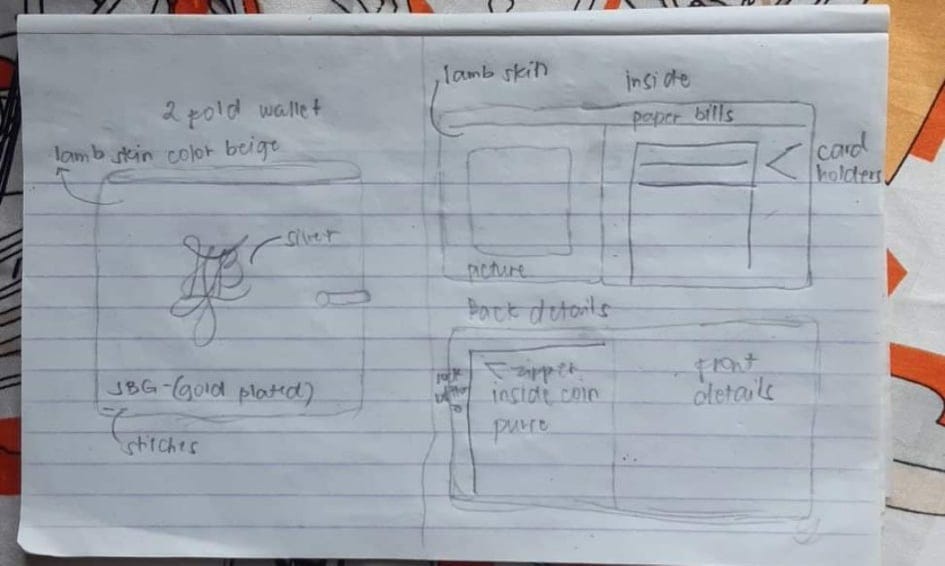 2 fold wallet
lamb skin color beige
silver
SBG-(gold plated)
stitches
lamb skin
inside
paper bills
card
holders
picture
Back details
zipper
inside coin
purse
front
details